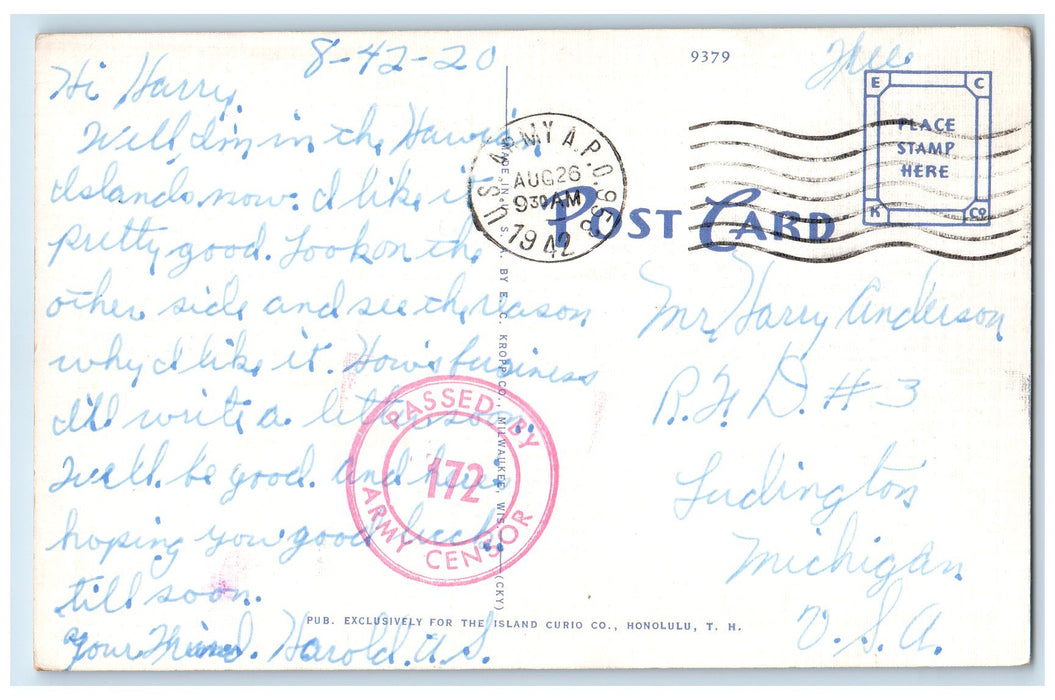 8-42-20
Hi Harry.
Well I'm in the Hawiian
Islands now. I like it
pretty good. Look on the
other side and see the reason
why I like it. How's business
I'll write a letter soon.
Well be good and here's
hoping you good luck.
till soon.
Your Friend. Harold. A. S.
9379
Free
E C
PLACE
STAMP
HERE
K Co
U.S. ARMY A.P.O. 958
AUG 26
930 AM
1942
POST CARD
Mr. Harry Anderson
R. F. D. #3
Ludington
Michigan
U. S. A.
PASSED BY
172
ARMY CENSOR
MADE IN U. S. A. BY E. C. KROPP CO., MILWAUKEE, WIS. (CKY)
PUB. EXCLUSIVELY FOR THE ISLAND CURIO CO., HONOLULU, T. H.